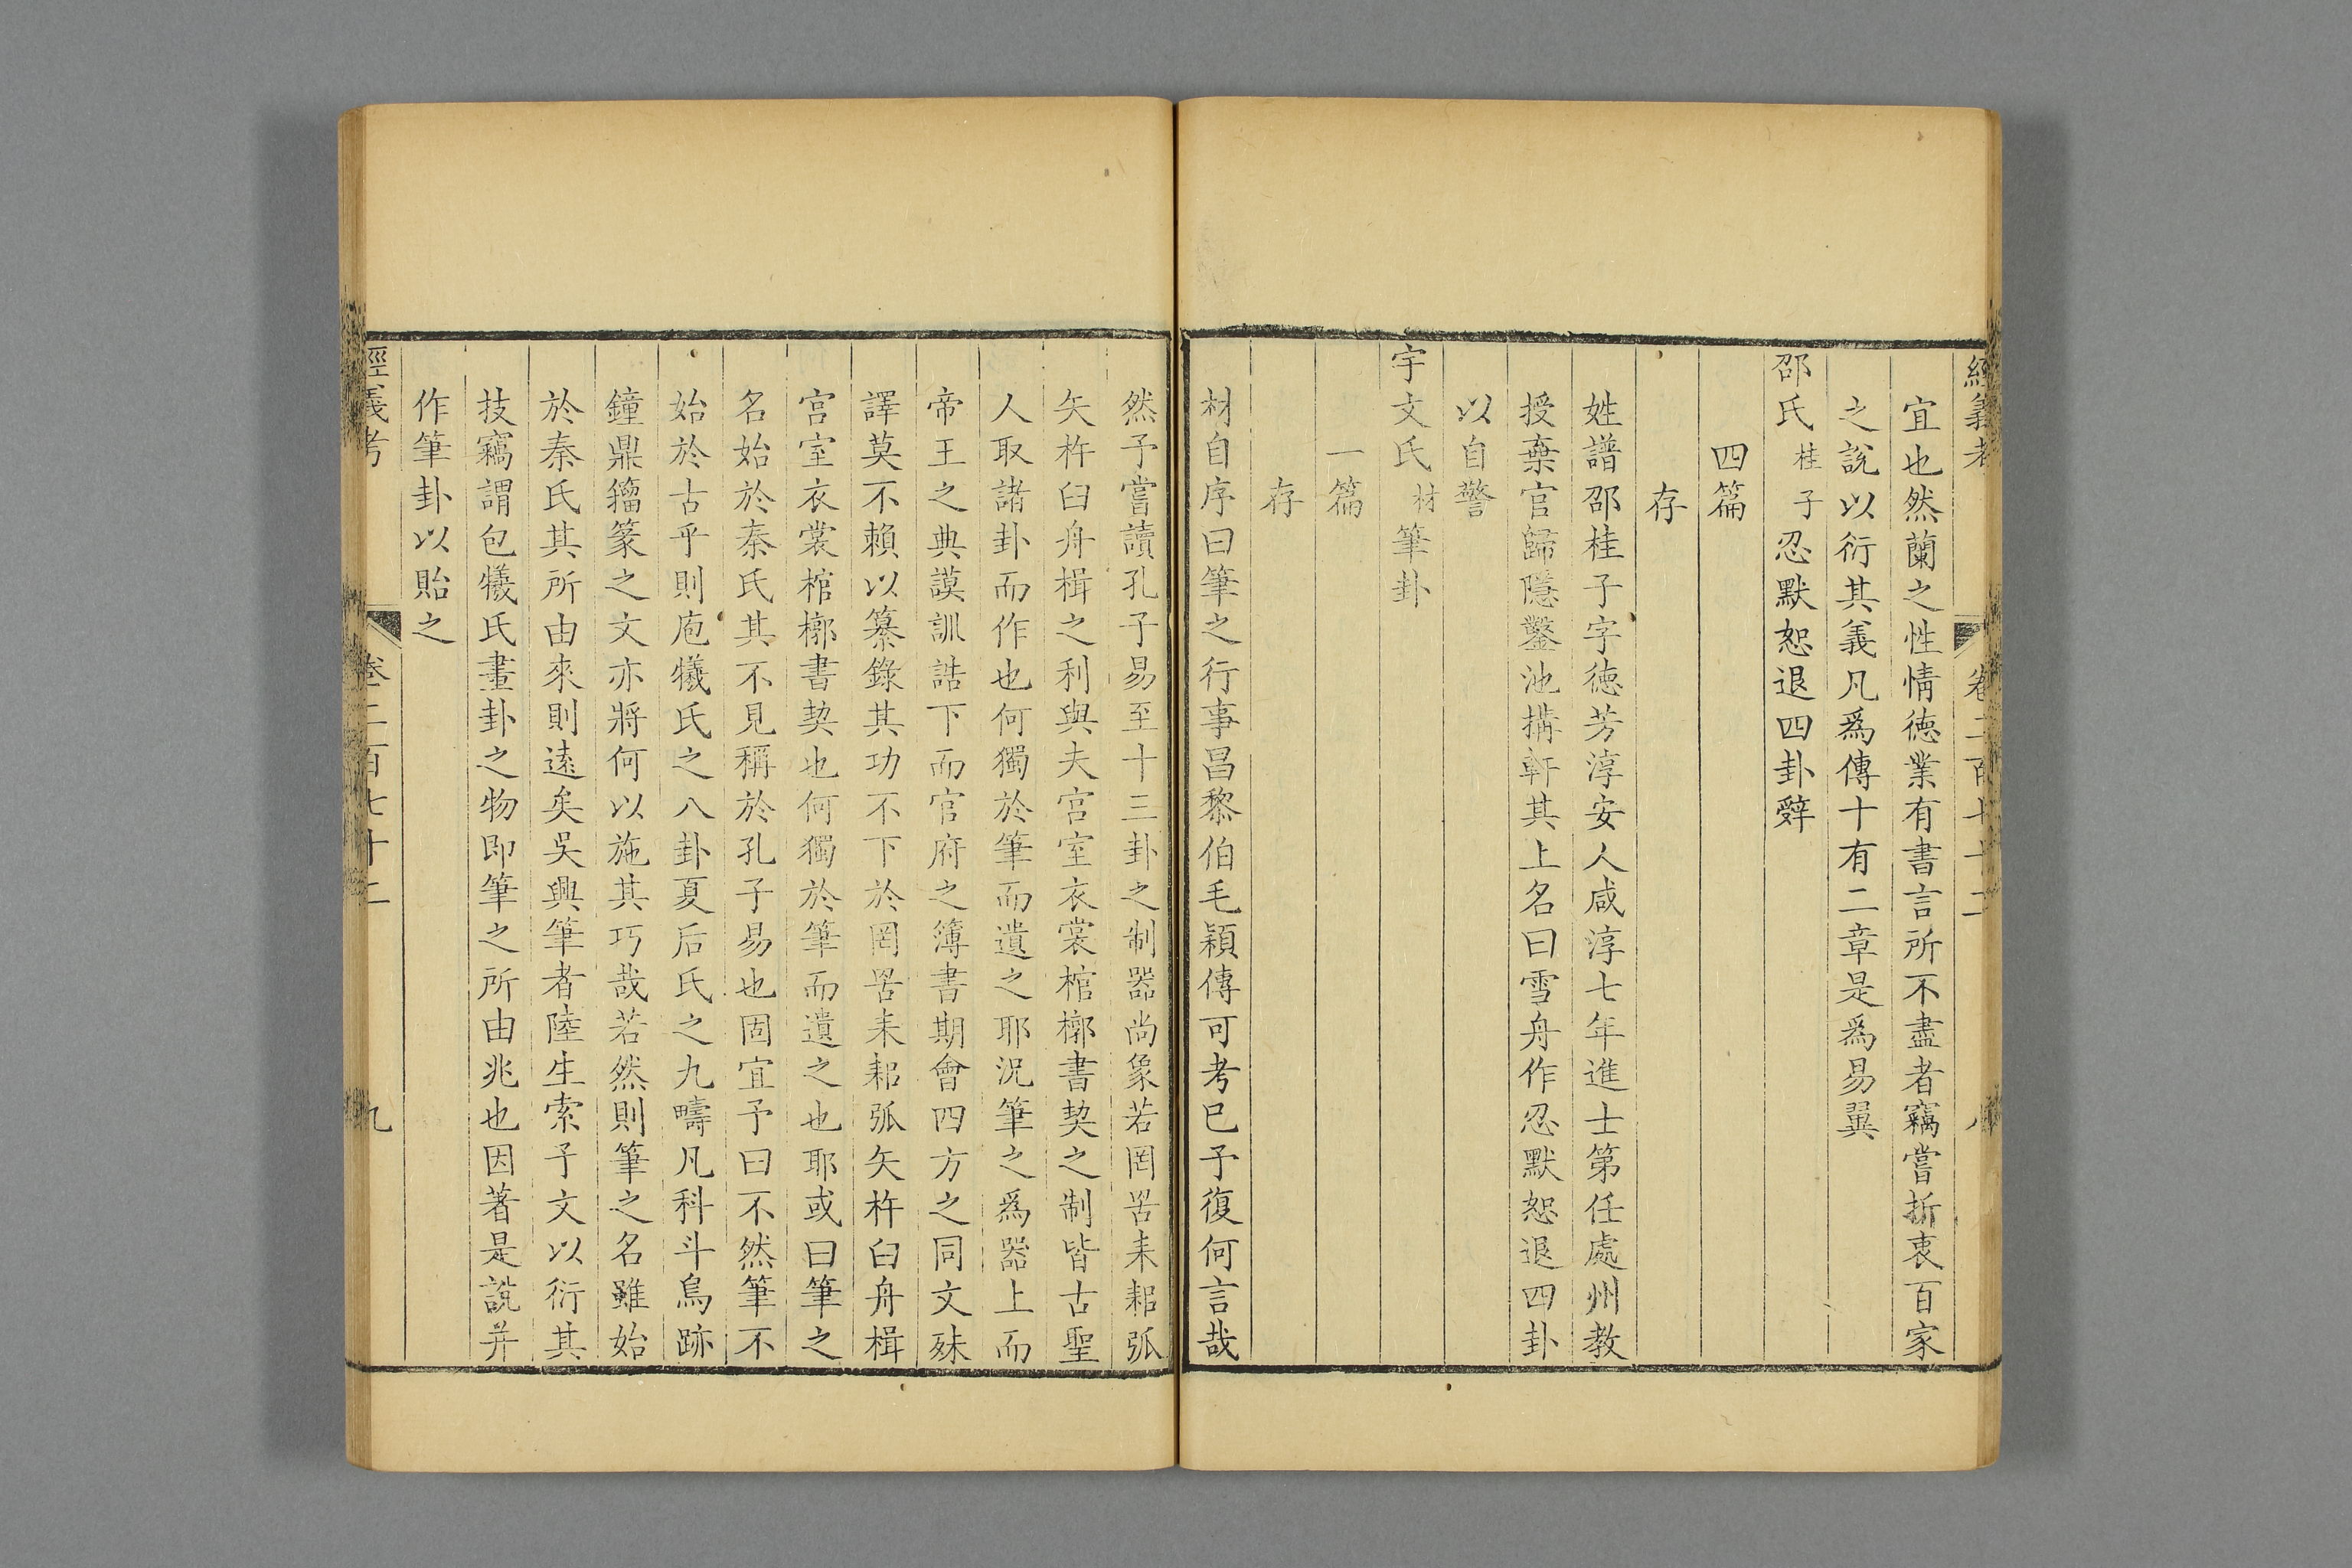 經義考　卷二百七十二　八
宜也然蘭之性情德業有書言所不盡者竊嘗折衷百家
之說以衍其義凡爲傳十有二章是爲易翼
邵氏桂子忍默恕退四卦辭
四篇
存
姓譜邵桂子字德芳淳安人咸淳七年進士第任處州教
授棄官歸隱鑿池搆軒其上名曰雪舟作忍默恕退四卦
以自警
宇文氏材筆卦
一篇
存
材自序曰筆之行事昌黎伯毛穎傳可考已予復何言哉
然予嘗讀孔子易至十三卦之制器尚象若罔罟耒耜弧
矢杵臼舟楫之利與夫宮室衣裳棺槨書契之制皆古聖
人取諸卦而作也何獨於筆而遺之耶況筆之爲器上而
帝王之典謨訓誥下而官府之簿書期會四方之同文殊
譯莫不賴以纂錄其功不下於罔罟耒耜弧矢杵臼舟楫
宮室衣裳棺槨書契也何獨於筆而遺之也耶或曰筆之
名始於秦氏其不見稱於孔子易也固宜予曰不然筆不
始於古乎則庖犧氏之八卦夏后氏之九疇凡科斗鳥跡
鐘鼎籀篆之文亦將何以施其巧哉若然則筆之名雖始
於秦氏其所由來則遠矣吳興筆者陸生索予文以衍其
技竊謂包犧氏畫卦之物即筆之所由兆也因著是說并
作筆卦以貽之
經義考　卷二百七十二　九